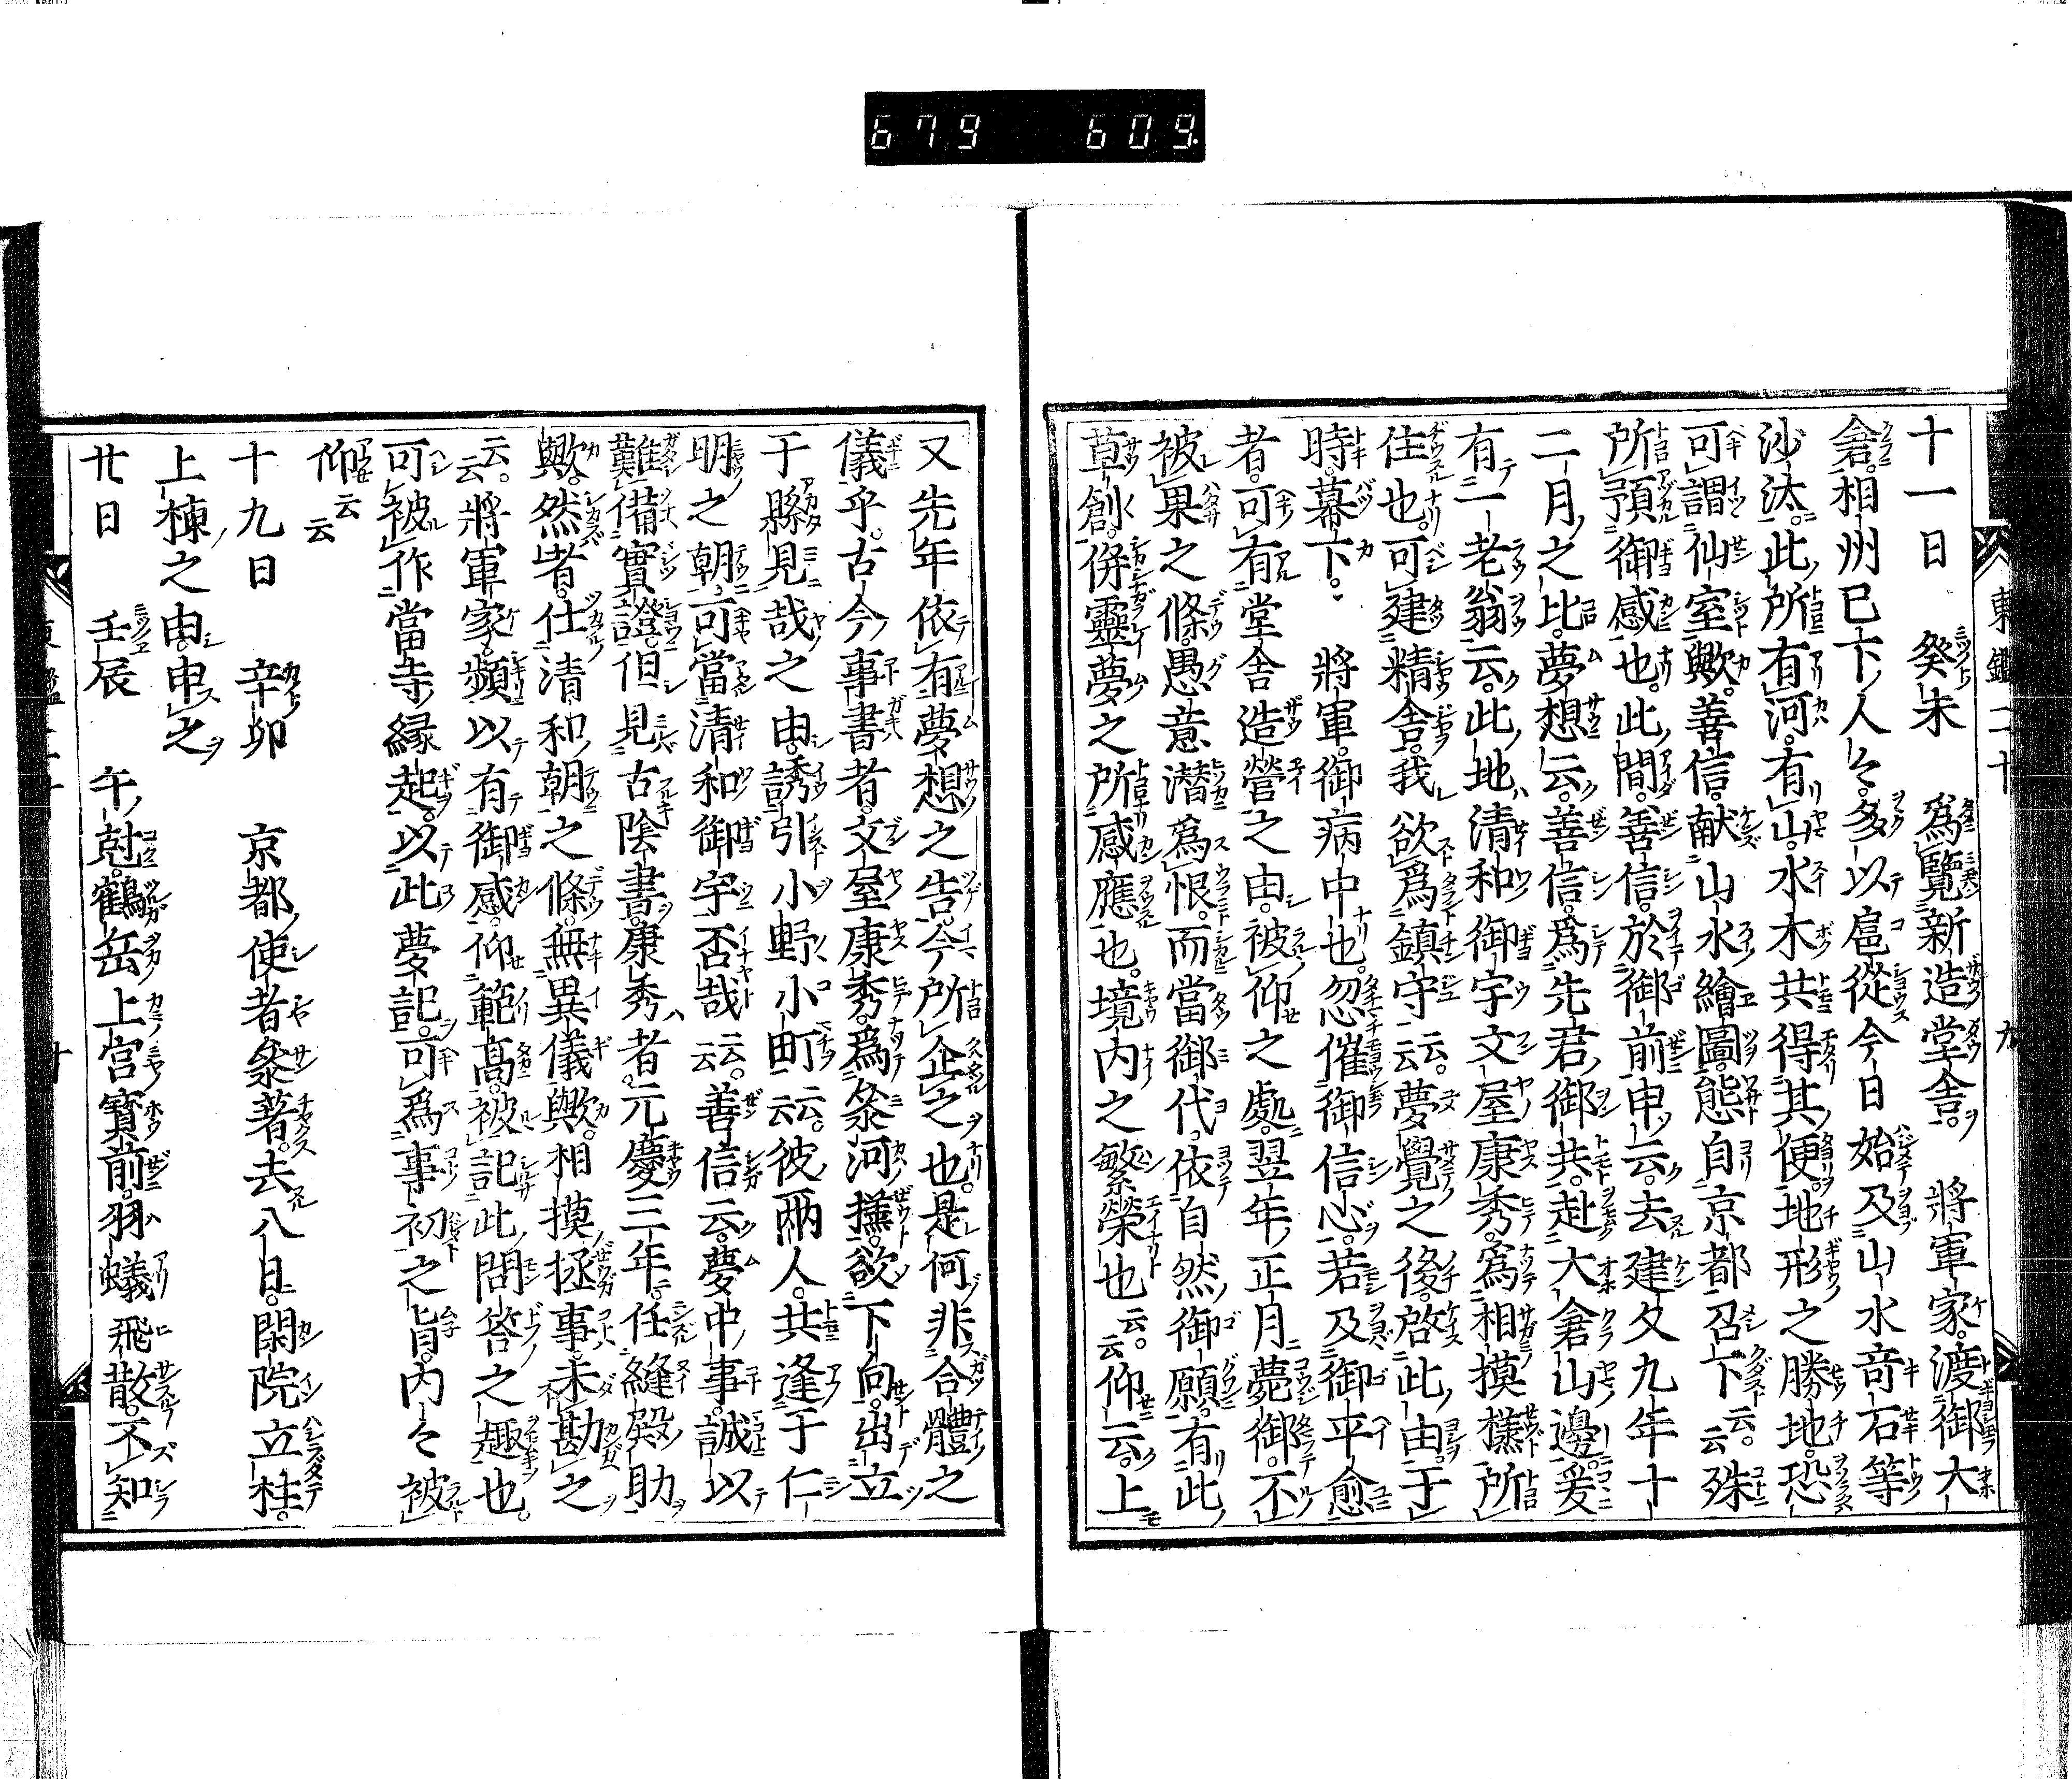 679 609
十一日 癸未 爲覽新造堂舎。 將軍家。渡御大
倉。相州已下人〻。多以扈從今日始及山水奇石等
沙汰。此所有河。有山。水木共得其便。地形之勝地。恐
可謂仙室歟。善信。献山水繪圖。態自京都召下云云。殊
所預御感也。此間。善信於御前申云。去建久九年十
二月之比。夢想云。善信爲先君御共。赴大倉山邊。爰
有一老翁云。此地清和御宇文屋康秀。爲相摸㯝所
住也。可建精舎。我欲爲鎮守云云。夢覺之後。啓此由于
時。幕下。 將軍。御病中也。忽催御信心。若及御平愈
者。可有堂舎造營之由。被仰之處。翌年正月薨御。不
被果之條。愚意潜爲恨。而當御代。依自然御願。有此
草創。併靈夢之所感應也。境内之繁榮也云云。仰云。上
東鑑二十 九
又先年依有夢想之告。今所企之也。是何非合體之
儀乎。古今事書者。文屋康秀。爲叅河㯝。欲下向。出立
于縣見哉之由。誘引小野小町云云。彼兩人。共逢于仁
明之朝。可當清和御宇否哉云云。善信云。夢中事。誠以
難備實證。但見古陰書。康秀者。元慶三年。任縫殿助
歟。然者。仕清和朝之條。無異儀歟。相摸拯事。未勘之
云云。將軍家。頻以有御感。仰範高。被記此問答之趣也。
可被作當寺縁起。以此夢記。可爲事初之旨。内〻被
仰云云
十九日 辛卯 京都使者叅著。去八日。閑院立柱。
上棟之由。申之
廿日 壬辰 午尅。鶴岳上宮寳前。羽蟻飛散。不知
十